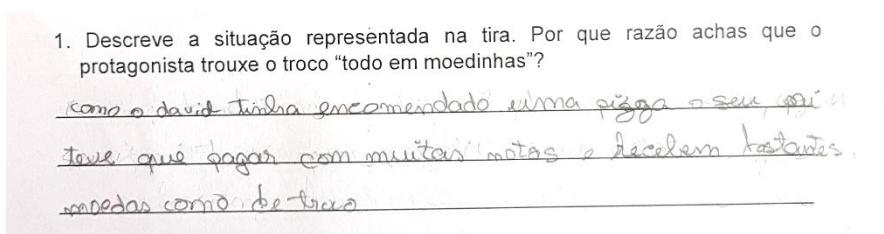 1. Descreve a situação representada na tira. Por que razão achas que o
protagonista trouxe o troco “todo em moedinhas”?
como o david tinha encomendado uma pizza o seu pai
teve que pagar com muitas notas e recebem bastantes
moedas como de troco